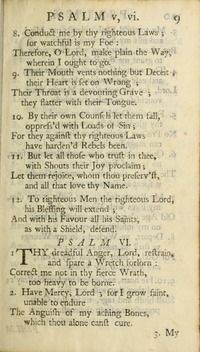 PSALM v, vi. 9
8. Conduct me by thy righteous Laws ;
for watchful is my Foe :
Therefore, O Lord, make plain the Way,
wherein I ought to go.
9. Their Mouth vents nothing but Deceit ,
their Heart is set on Wrong ;
Their Throat is a devouring Grave ;
they flatter with their Tongue.
10. By their own Counsels let them fall,
oppress'd with Loads of Sin ;
For they against thy righteous Laws
have harden'd Rebels been.
11. But let all those who trust in thee,
with Shouts their Joy proclaim ;
Let them rejoice, whom thou preserv'st,
and all that love thy Name.
12. To righteous Men the righteous Lord,
his Blessing will extend ;
And with his Favour all his Saints,
as with a Shield, defend.
PSALM VI.
1 THY dreadful Anger, Lord, restrain,
and spare a Wretch forlorn :
Correct me not in thy fierce Wrath,
too heavy to be borne.
2. Have Mercy, Lord ; for I grow faint,
unable to endure
The Anguish of my aching Bones,
which thou alone canst cure.
3. My